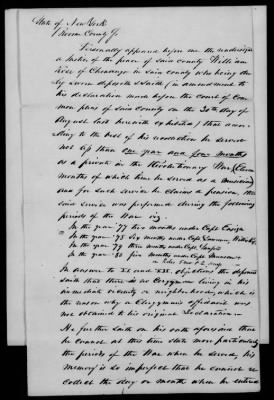 State of New York
Broome County Ss
Personally appeared before me the undersigned
a Justice of the peace of said county William
of Chenango in said county who being du
ly sworn deposeth & saith (in amendment to
his declaration made before the Court of Com
mon pleas of said County on the 20th day of
August last herewith exhibited) that accor
ding to the best of his recollection he served
not less than one year and four months
as a private in the Revolutionary War
months of which time he served as a
and for such service he claims a pension that
said service was performed during the following
periods of the War viz.
In the year '77 two months under Capt
In the year '78 six months under Capt
In the year '79 three months under Capt
In the year '80 five months under Capt
In answer to objections the deponent
saith that there is no Clergyman living in his
immediate vicinity or neighborhood, which is
the reason why a Clergyman's affidavit was
not obtained to his original Declaration
He further saith on his oath aforesaid that
he cannot at this time state more particularly
the periods of the War when he served, his
memory is so imperfect that he cannot re
collect the day or month when he entered